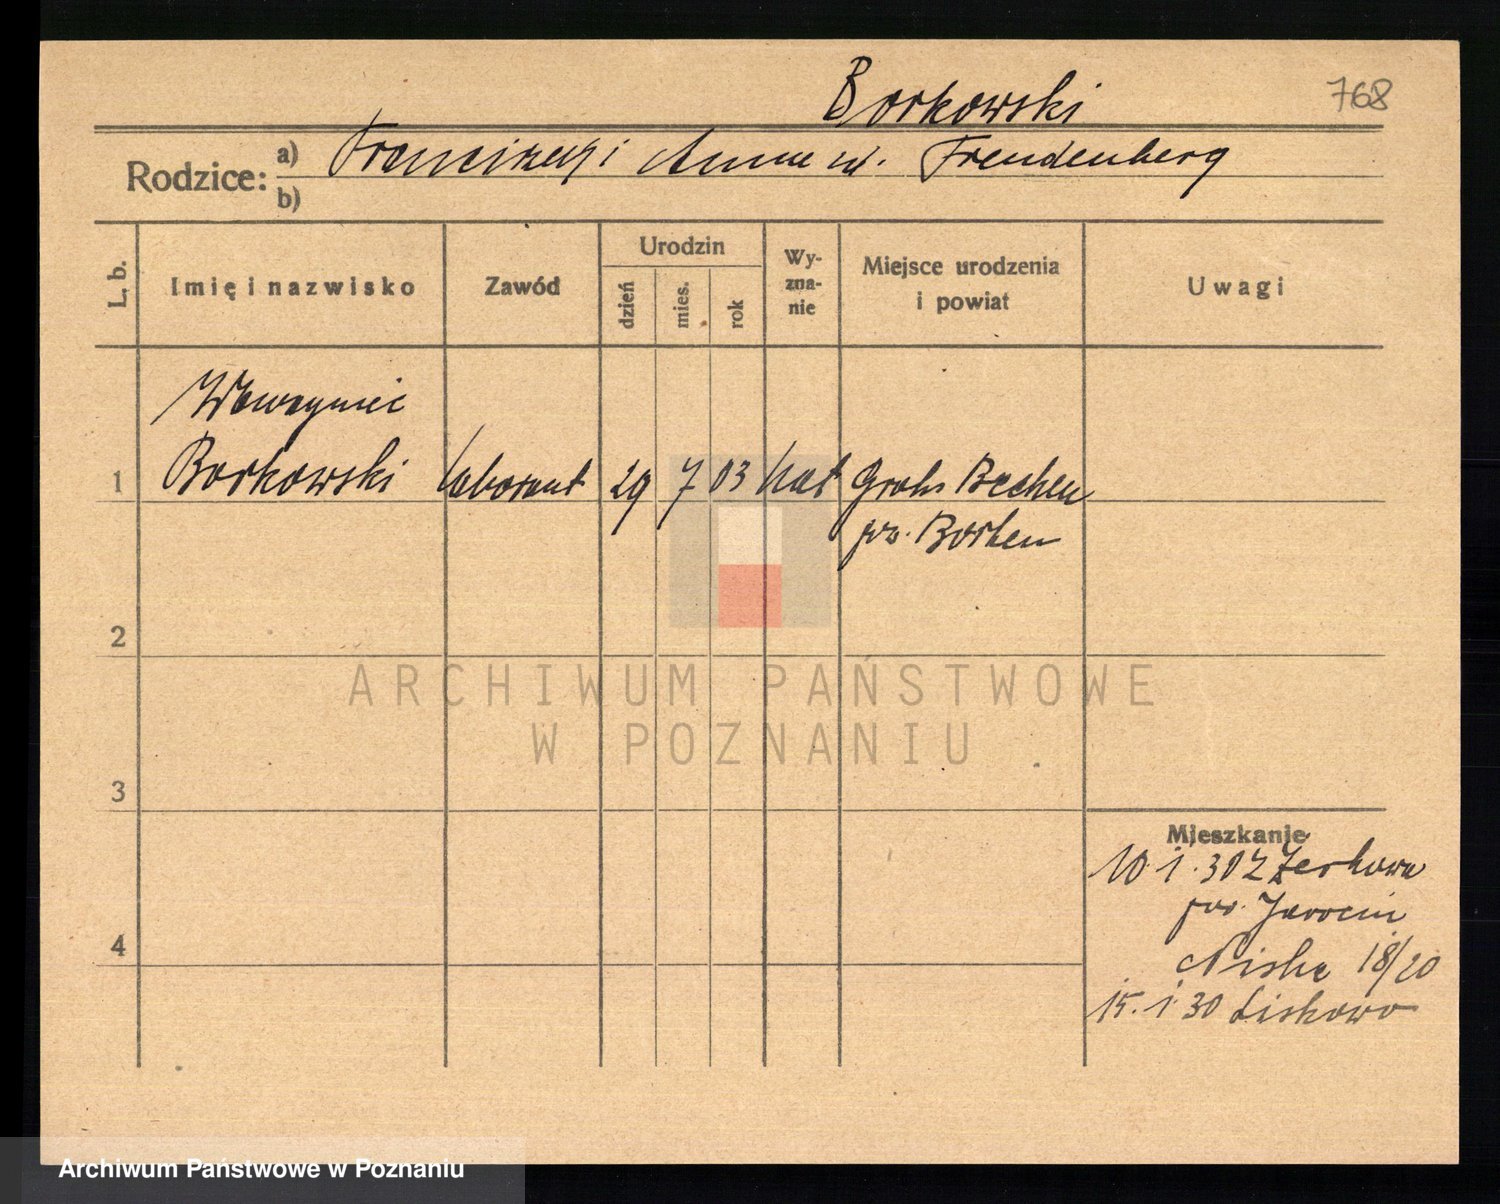 Borkowski 768
Rodzice: a) Franciszek i Anna ur. Freudenberg
b)
L. b. Imię i nazwisko Zawód Urodzin dzień mies. rok Wy-zna-nie Miejsce urodzenia i powiat Uwagi
Wawrzyniec
1 Borkowski laborant 29 7 03 kat Grohs Bechen
pw. Borken
2
3
Mieszkanie
10 1. 30 z Żerkowa
pow. Jarocin
4 Niska 18/20
15. 1 30 Liskowo
ARCHIWUM PAŃSTWOWE
W POZNANIU
Archiwum Państwowe w Poznaniu